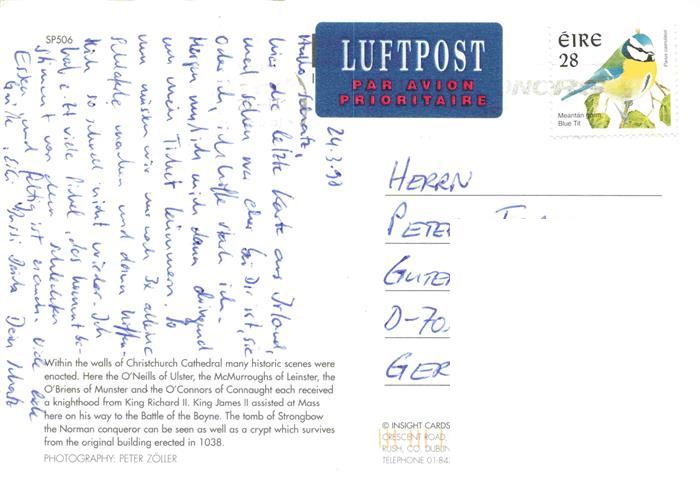 SP506
24.3.98
Hallo Schatz,
hier die letzte Karte aus Irland,
mal schön wer eher bei Dir ist, sie
oder ich, ich hoffe stark ich.
Morgen muß ich mich dann dringend
um mein Ticket kümmern. So
nun müssen wir nur noch 3x alleine
schlafen und dann
mich so schnell nicht wieder. Ich
hab jetzt viele Pickel, das kommt be-
stimmt von dem schlechten
Essen und fettig ist es auch. Viele liebe
Grüße, Dein Schatz
LUFTPOST
PAR AVION
PRIORITAIRE
ÉIRE
28
Meantán gorm
Blue Tit
Parus caeruleus
HERRN
PETER
GUTE
D-70
GER
Within the walls of Christchurch Cathedral many historic scenes were
enacted. Here the O'Neills of Ulster, the McMurroughs of Leinster, the
O'Briens of Munster and the O'Connors of Connaught each received
a knighthood from King Richard II. King James II assisted at Mass
here on his way to the Battle of the Boyne. The tomb of Strongbow
the Norman conqueror can be seen as well as a crypt which survives
from the original building erected in 1038.
PHOTOGRAPHY: PETER ZÖLLER
© INSIGHT CARDS
CRESCENT ROAD,
RUSH, CO. DUBLIN
TELEPHONE 01-843